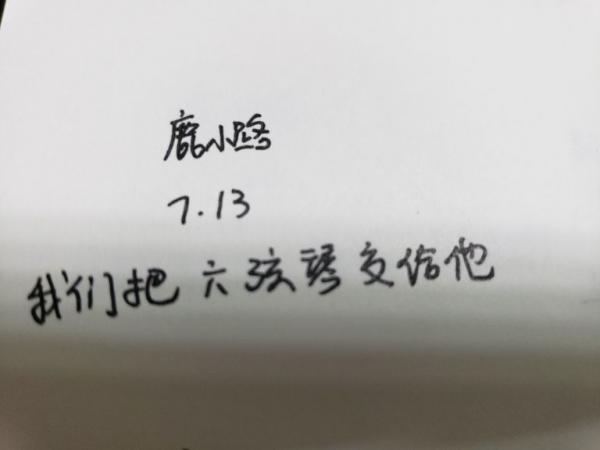 鹿小路
7.13
我们把六弦琴交给他